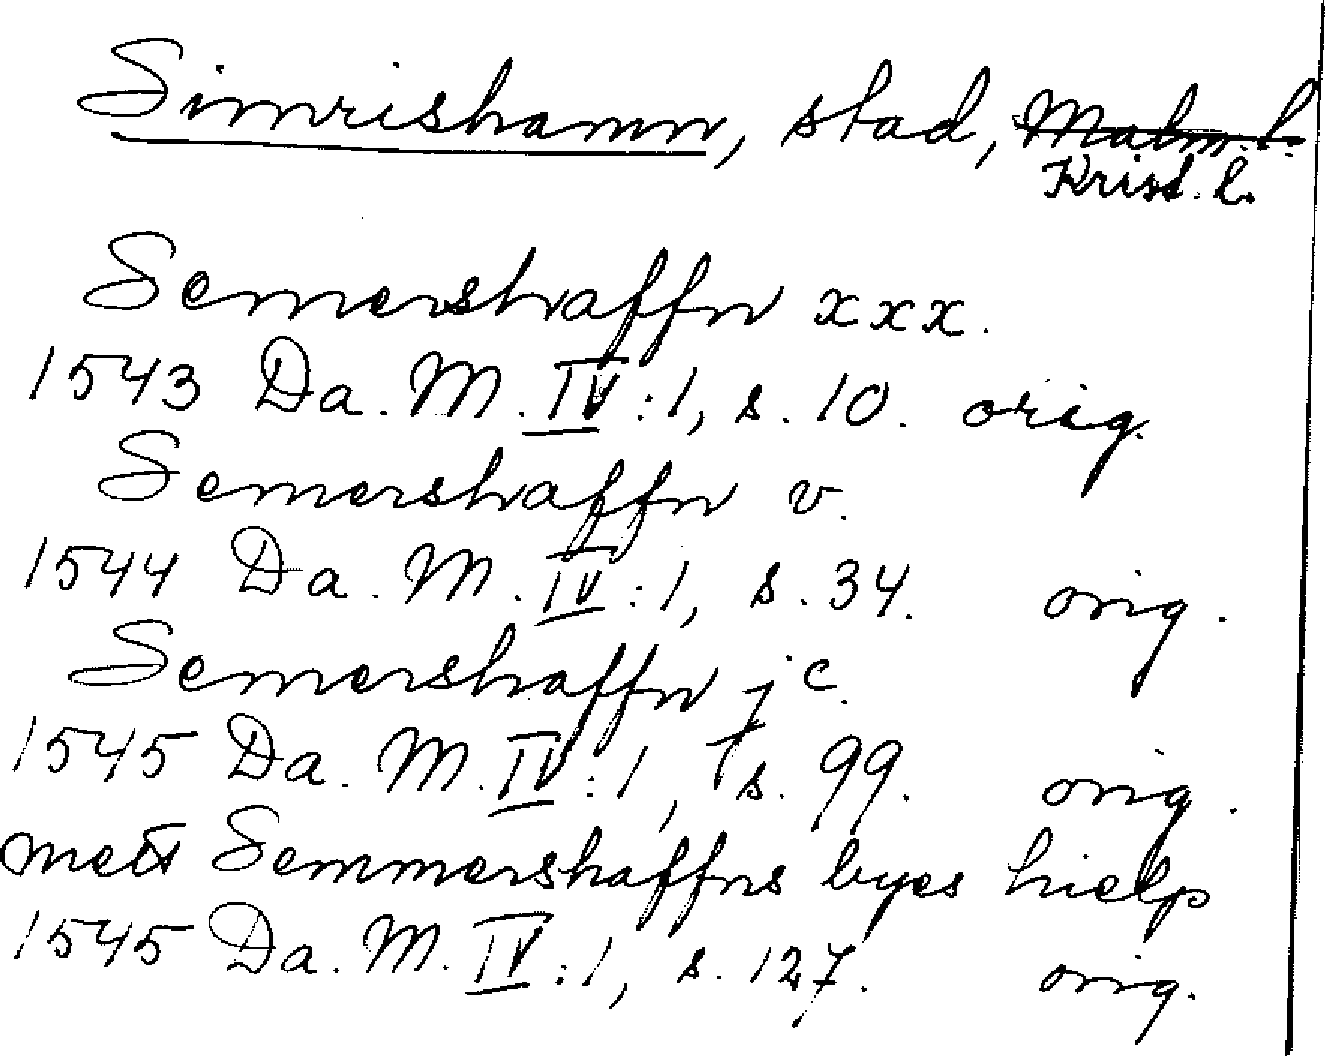 Simrishamn, stad, Malm. l.
Krist. l.
Semershaffn xxx.
1543 Da. M. IV:1, s. 10. orig.
Semershaffn v.
1544 Da. M. IV:1, s. 34. orig.
Semershaffn jc.
1545 Da. M. IV:1, s. 99. orig.
mett Semmershaffns byes hielp
1545 Da. M. IV:1, s. 127. orig.